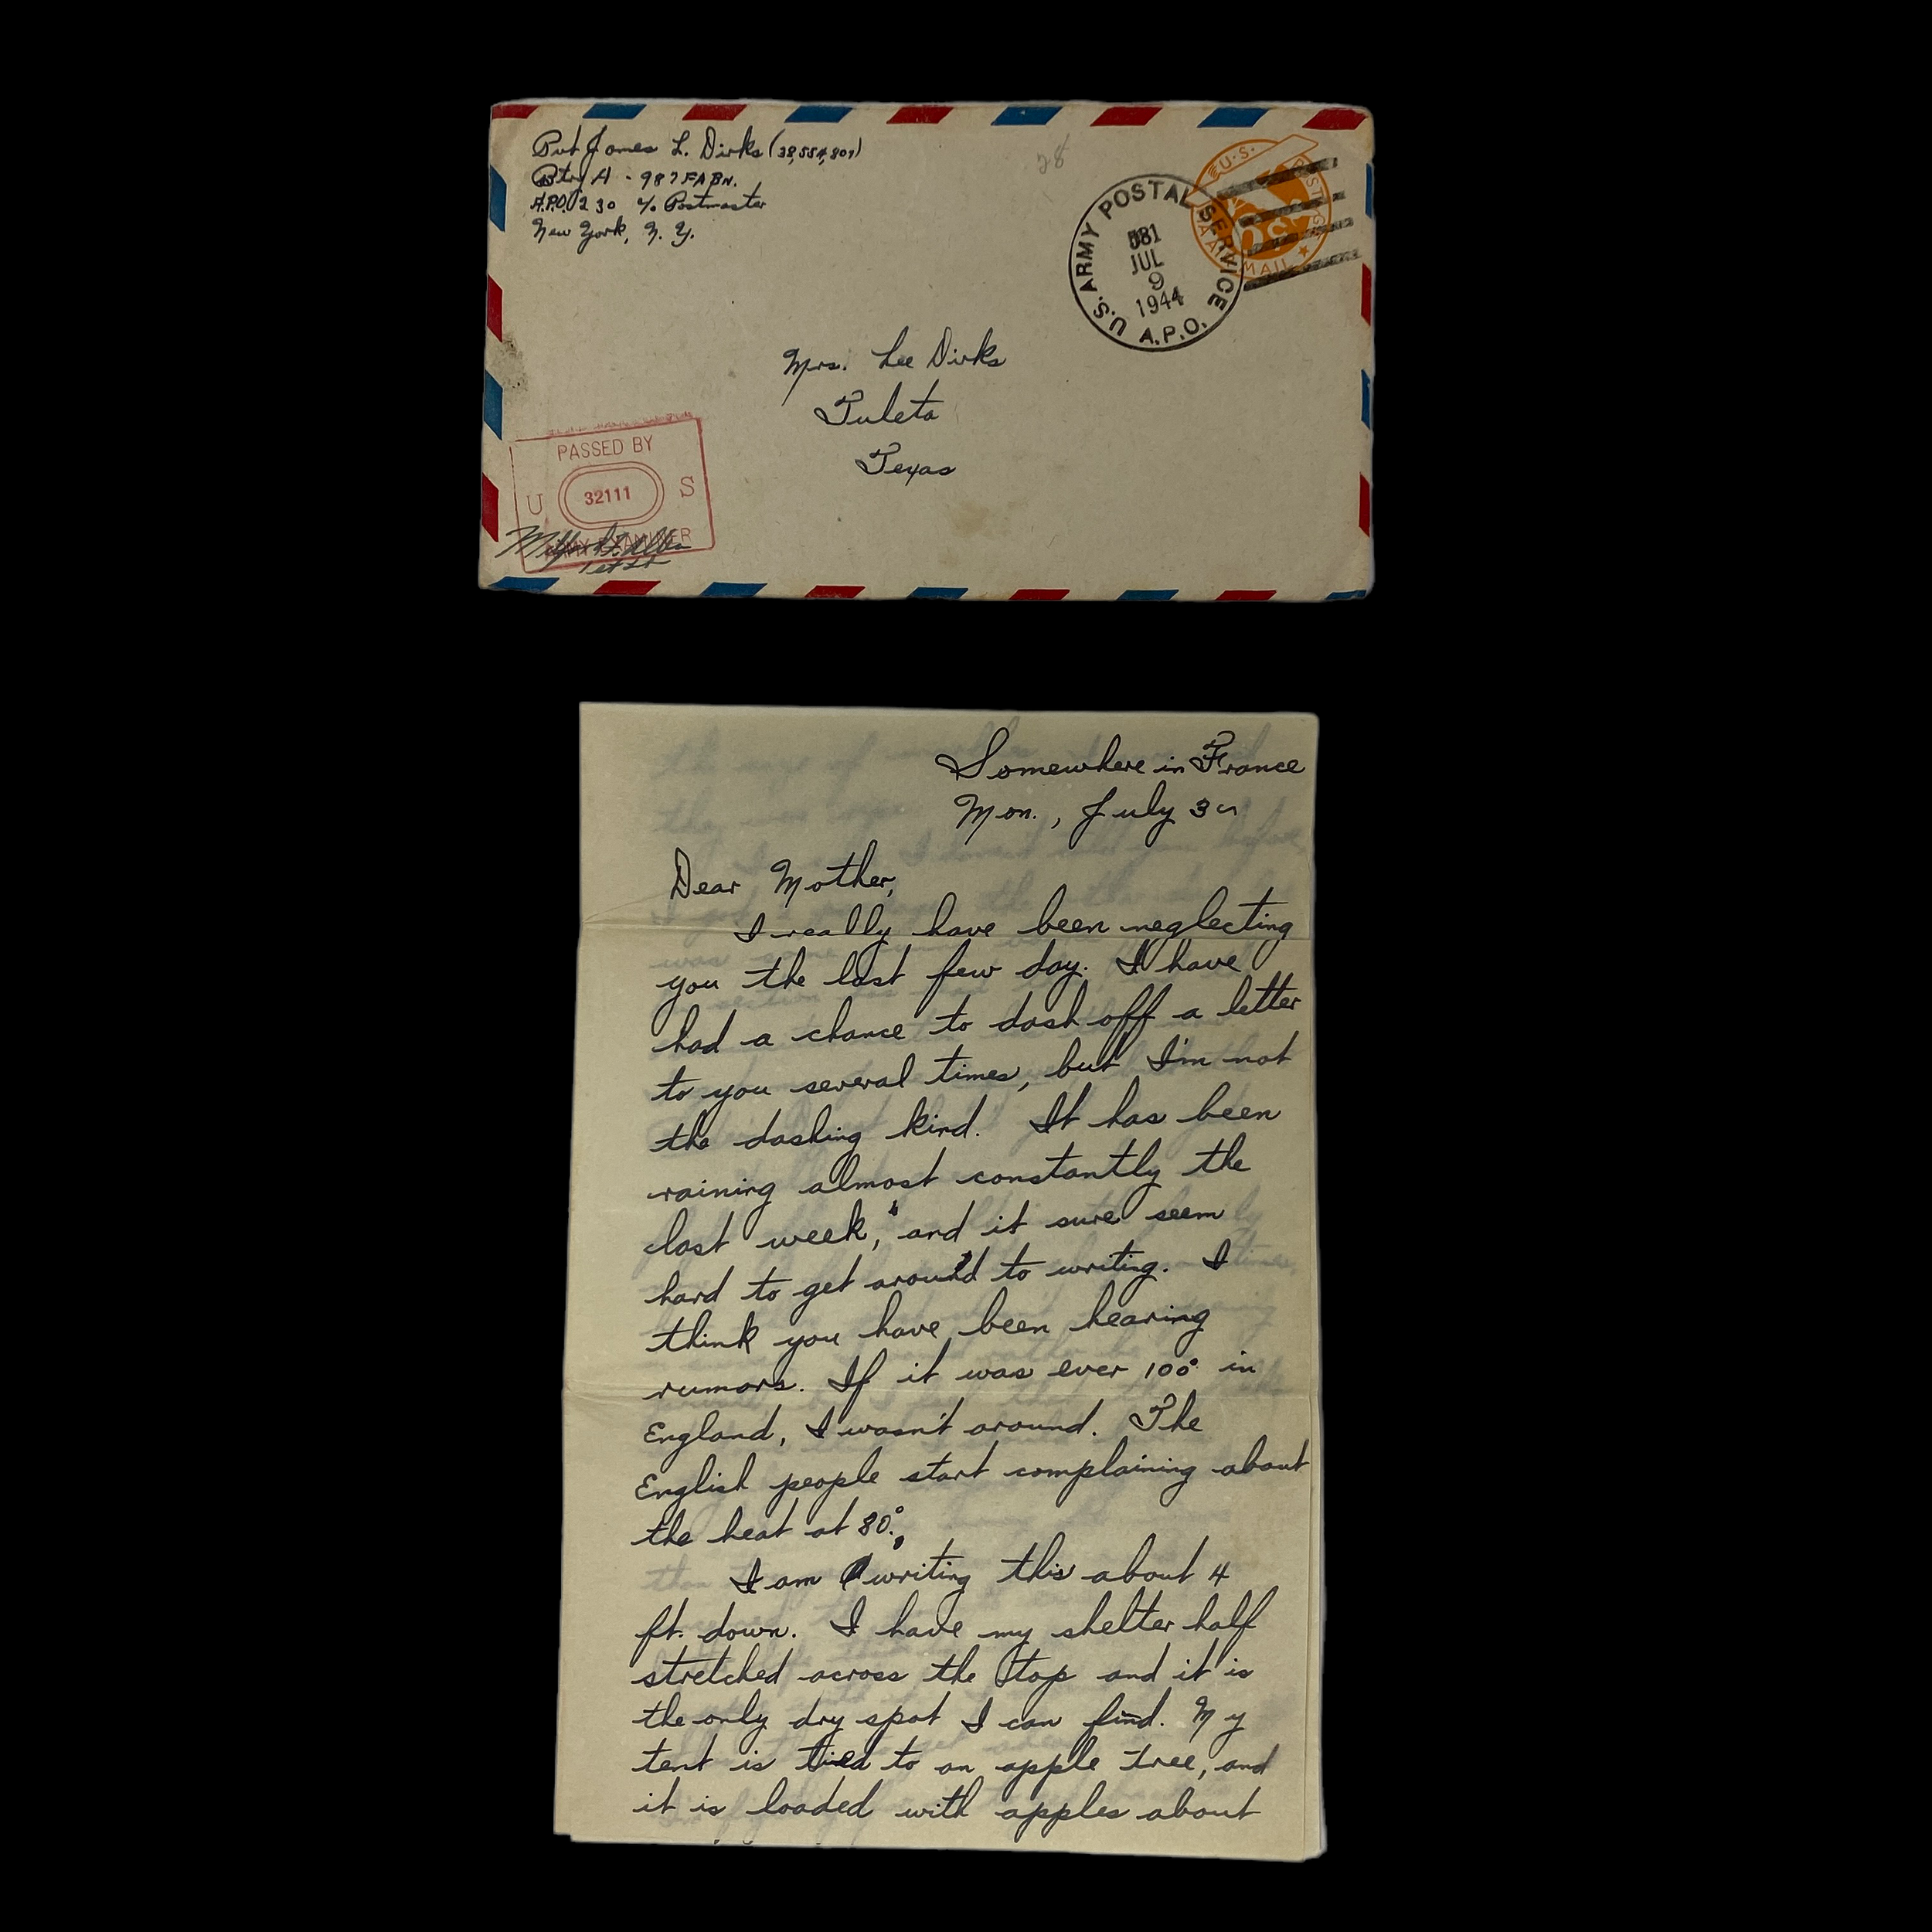 Pvt James L. Dirks (38,554,807)
Btry A - 987 FA BN.
A.P.O. 230 c/o Postmaster
New York, N. Y.
28
U.S. ARMY POSTAL SERVICE
JUL
9
1944
A.P.O.
U.S. POSTAGE
VIA AIR MAIL
Mrs. Lee Dirks
Tuleta
Texas
PASSED BY
U 32111 S
ARMY EXAMINER
1st Lt
Somewhere in France
Mon., July 3
Dear Mother,
I really have been neglecting
you the last few day. I have
had a chance to dash off a letter
to you several times, but I'm not
the dashing kind. It has been
raining almost constantly the
last week, and it sure seem
hard to get around to writing. I
think you have been hearing
rumors. If it was ever 100° in
England, I wasn't around. The
English people start complaining about
the heat at 80°.
I am writing this about 4
ft. down. I have my shelter half
stretched across the top and it is
the only dry spot I can find. My
tent is tied to an apple tree, and
it is loaded with apples about